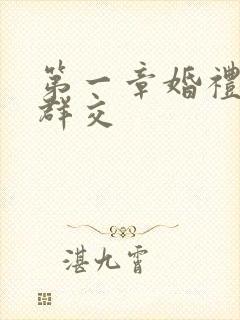 第一章婚禮
群交
湛九霄